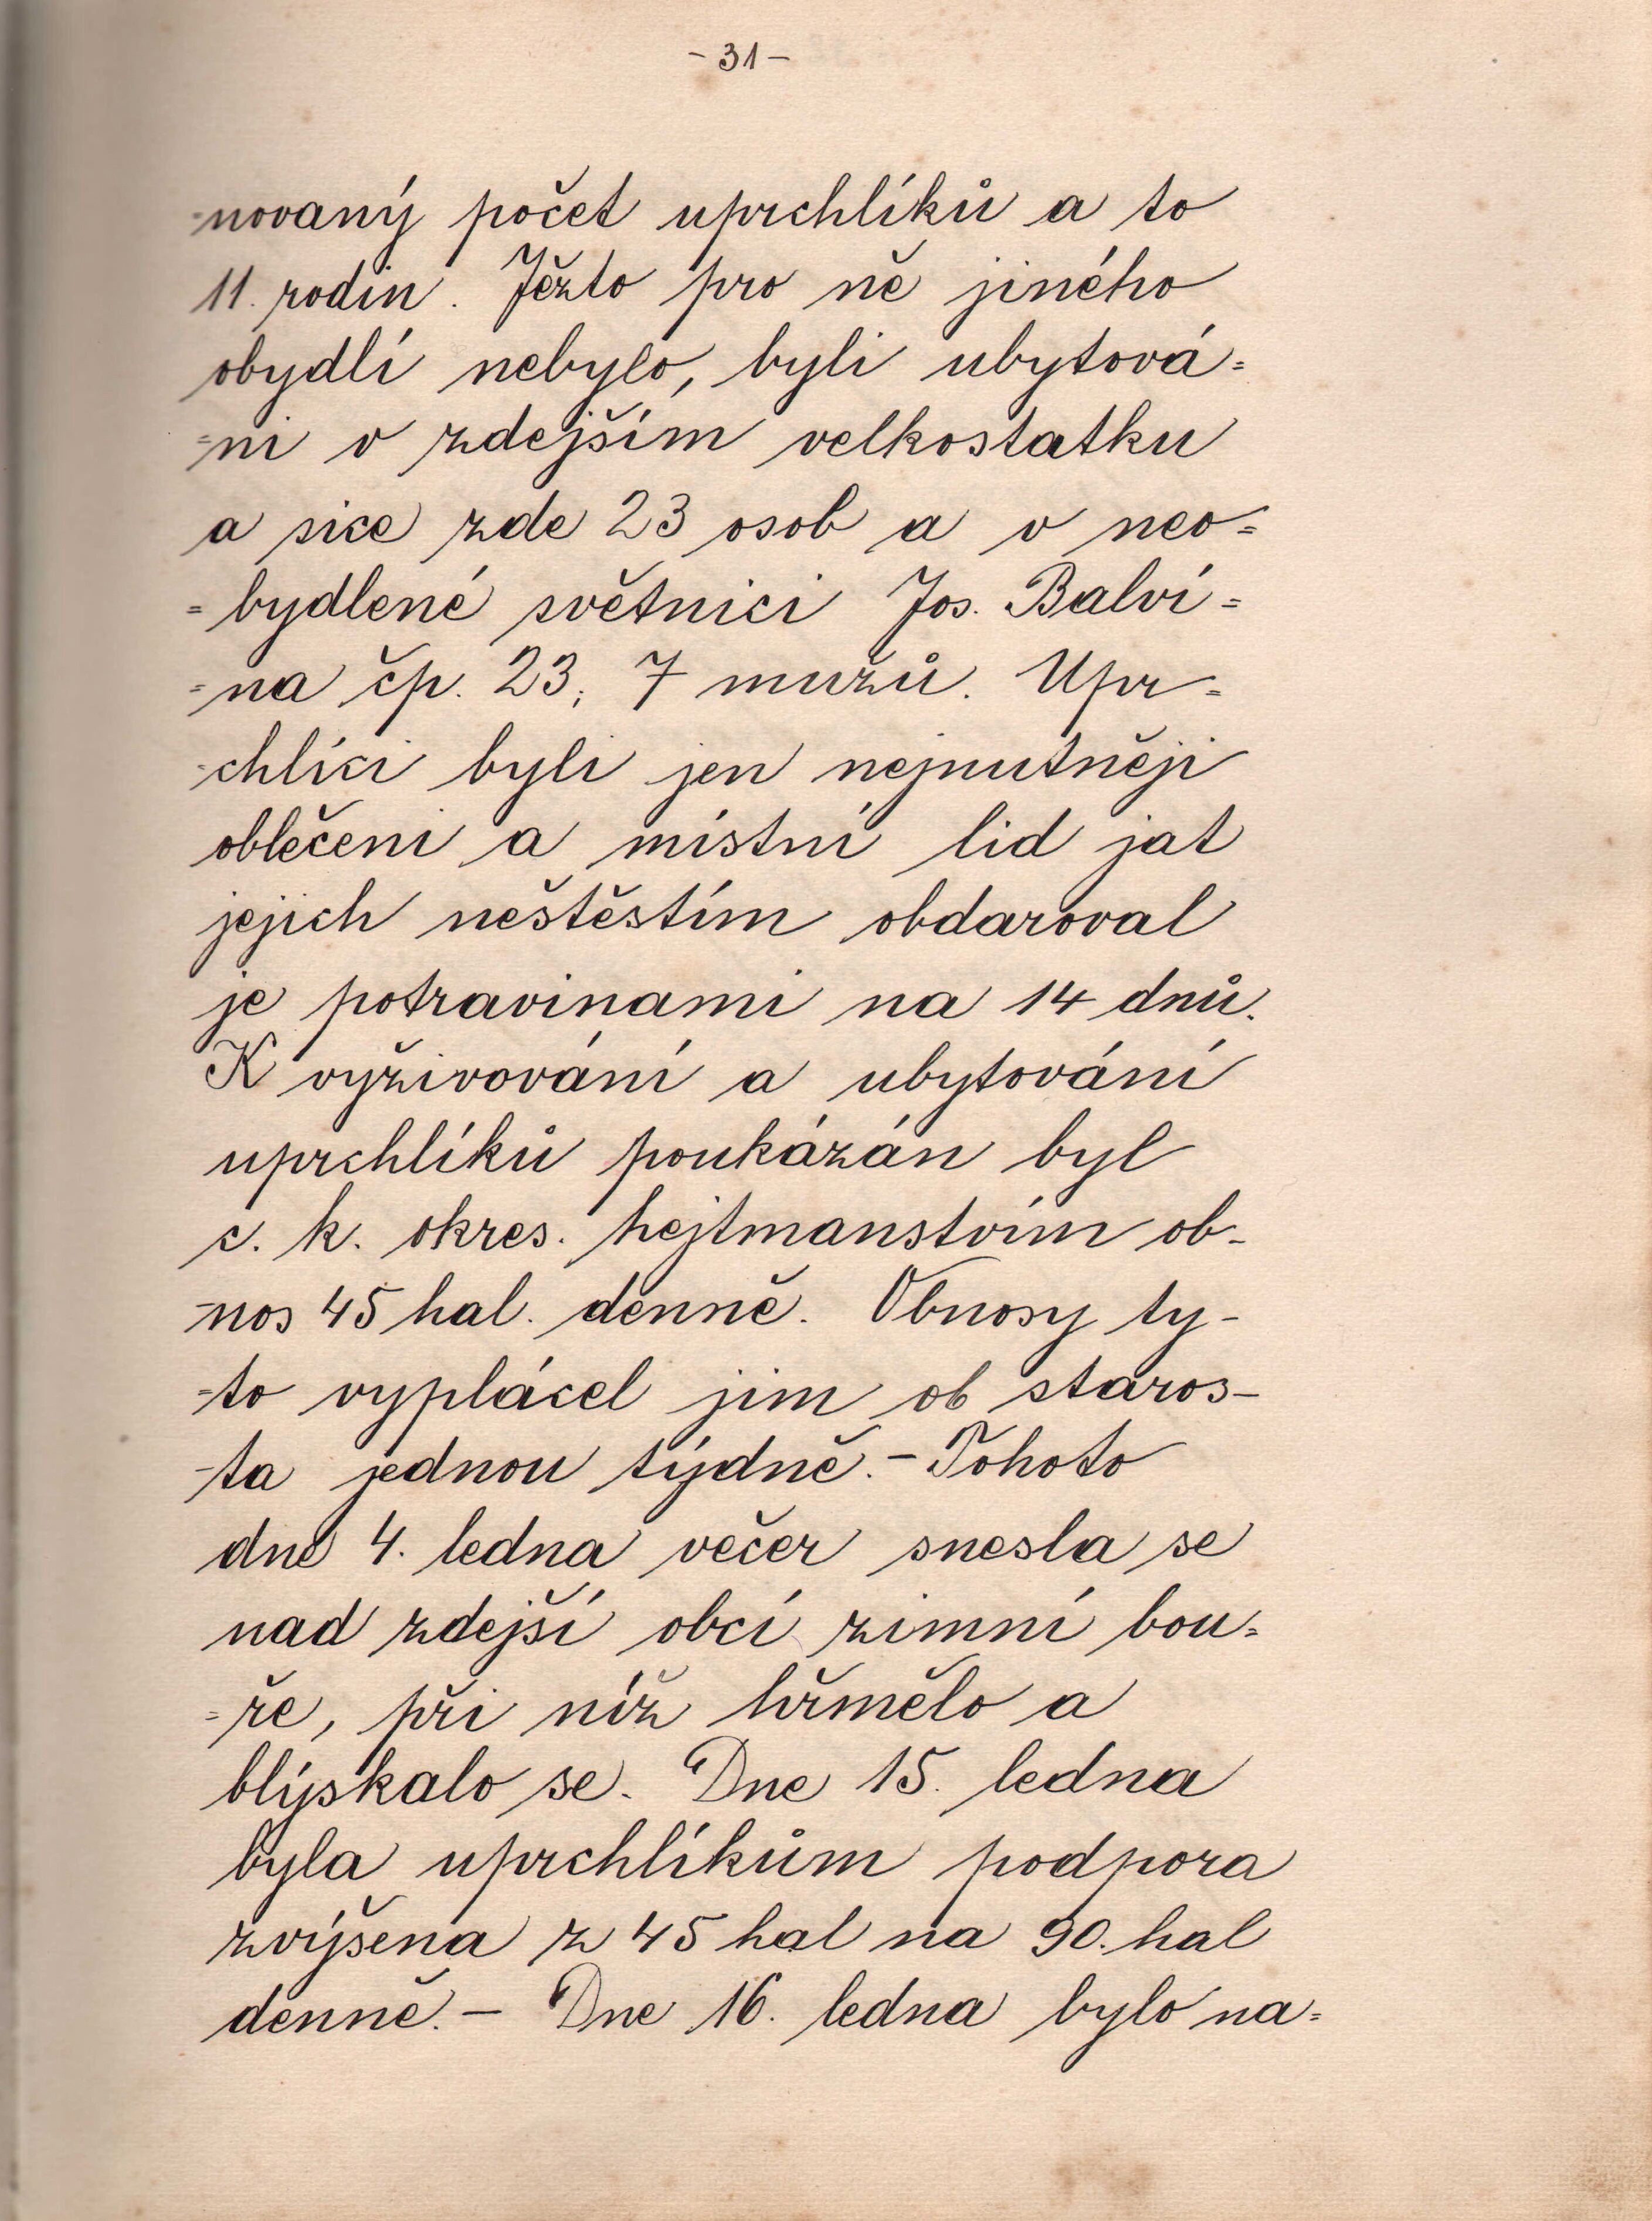 - 31 -
=novaný počet uprchlíků a to
11. rodin. Ježto pro ně jiného
obydlí nebylo, byli ubytová=
=ni v zdejším velkostatku
a sice zde 23 osob a v neo=
=bydlené světnici Jos. Balví=
=na čp. 23, 7 mužů. Upr=
=chlíci byli jen nejnutněji
oblečeni a místní lid jat
jejich neštěstím obdaroval
je potravinami na 14 dnů.
K vyživování a ubytování
uprchlíků poukázán byl
c. k. okres. hejtmanstvím ob-
-nos 45 hal. denně. Obnosy ty-
=to vyplácel jim ob. staros-
-ta jednou týdně. - Tohoto
dne 4. ledna večer snesla se
nad zdejší obcí zimní bou=
=ře, při níž hřmělo a
blýskalo se. Dne 15. ledna
byla uprchlíkům podpora
zvýšena z 45 hal na 90. hal
denně. - Dne 16. ledna bylo na=